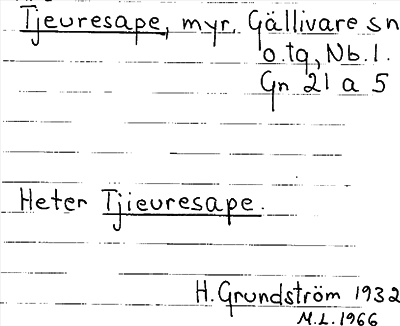 Tjeuresape, myr. Gällivare sn
o. tg, Nb. l.
Gn 21 a 5
Heter Tjieuresape.
H. Grundström 1932
M.L. 1966